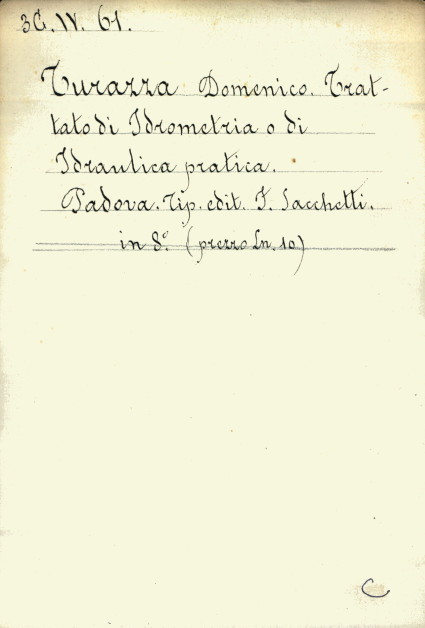 3G. IV. 61.
Turazza Domenico. Trat-
tato di Idrometria o di
Idraulica pratica.
Padova. Tip. edit. F. Sacchetti.
in 8.° (prezzo Ln. 10)
C